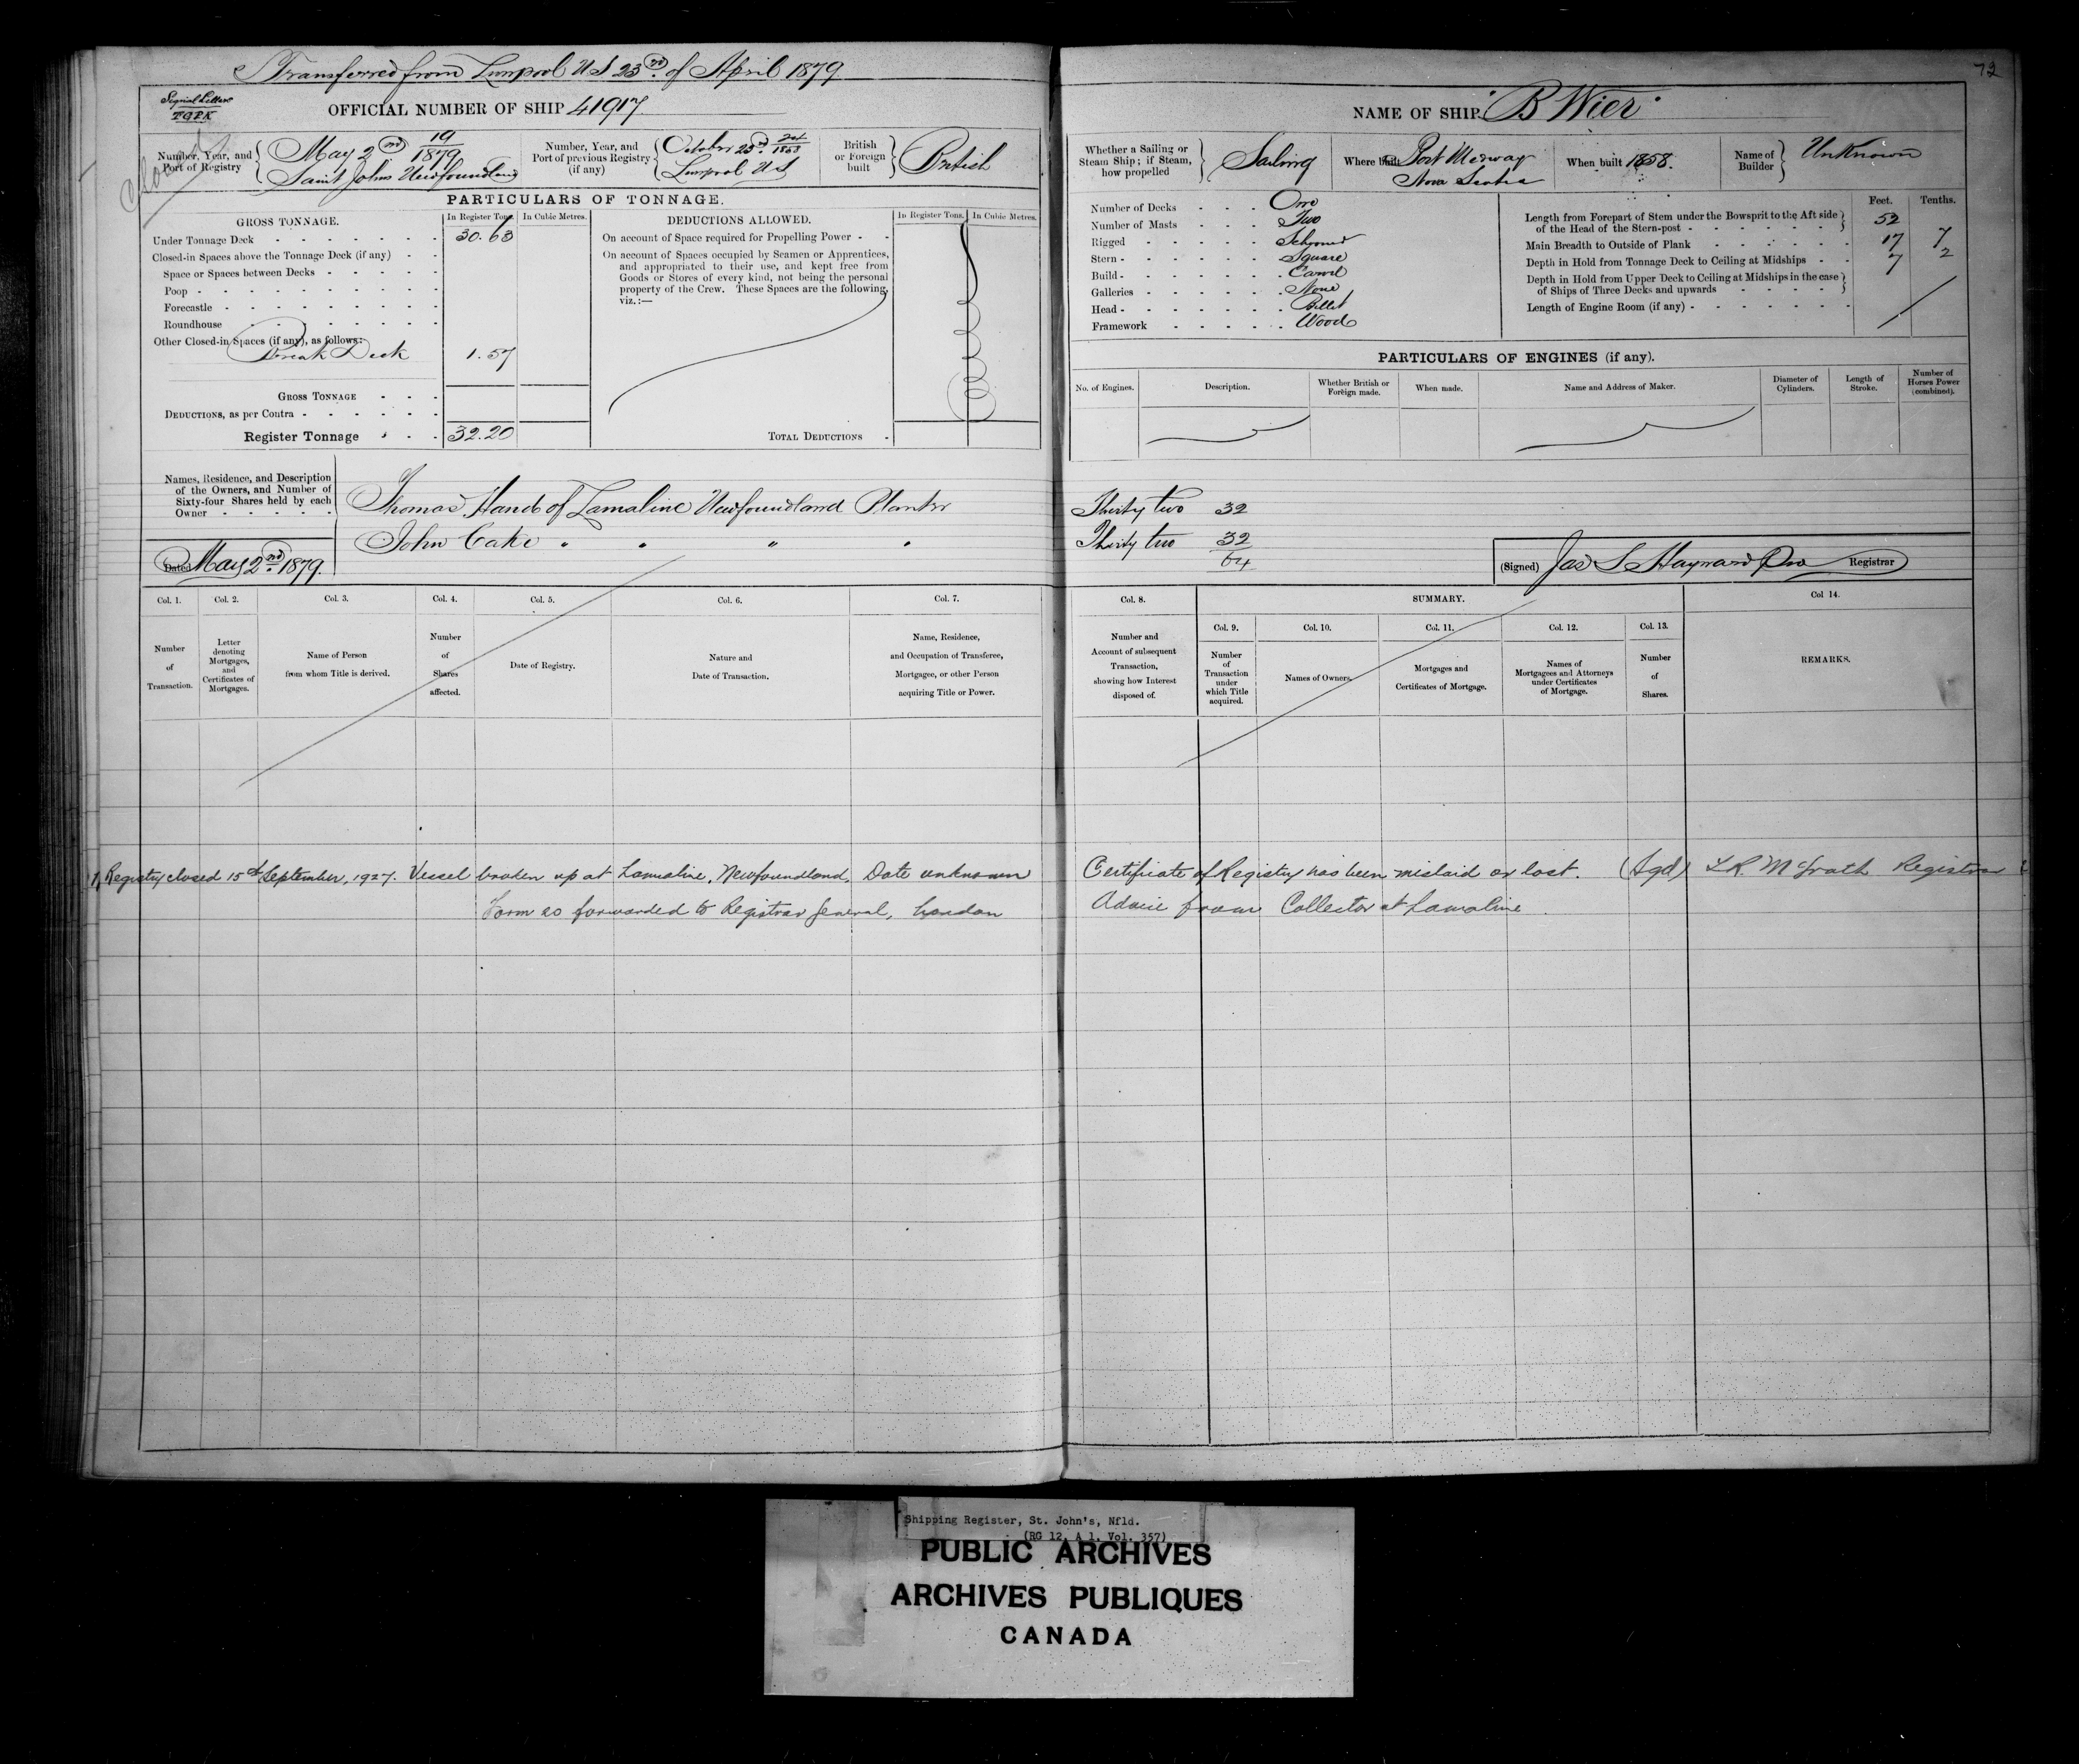 Transferred from Liverpool NS 23rd of April 1879
72
Signal Letters
OFFICIAL NUMBER OF SHIP 41917
NAME OF SHIP "B Wier"
Closed
Number, Year, and Port of Registry { May 2nd 19/1879 Saint Johns Newfoundland
Number, Year, and Port of previous Registry (if any) { October 23rd 1863 Liverpool NS
British or Foreign built } British
Whether a Sailing or Steam Ship; if Steam, how propelled } Sailing
Where built Port Medway Nova Scotia
When built 1858.
Name of Builder } Unknown
PARTICULARS OF TONNAGE.
GROSS TONNAGE. In Register Tons. In Cubic Metres.
Under Tonnage Deck 30.63
Closed-in Spaces above the Tonnage Deck (if any)
Space or Spaces between Decks
Poop
Forecastle
Roundhouse
Other Closed-in Spaces (if any), as follows:
Break Deck 1.57
GROSS TONNAGE
DEDUCTIONS, as per Contra
Register Tonnage 32.20
DEDUCTIONS ALLOWED. In Register Tons. In Cubic Metres.
On account of Space required for Propelling Power
On account of Spaces occupied by Seamen or Apprentices,
and appropriated to their use, and kept free from
Goods or Stores of every kind, not being the personal
property of the Crew. These Spaces are the following,
viz.:—
TOTAL DEDUCTIONS
Number of Decks One
Number of Masts Two
Rigged Schooner
Stern Square
Build Carvel
Galleries None
Head Billet
Framework Wood
Feet. Tenths.
Length from Forepart of Stem under the Bowsprit to the Aft side of the Head of the Stern-post 52
Main Breadth to Outside of Plank 17 7
Depth in Hold from Tonnage Deck to Ceiling at Midships 7 2
Depth in Hold from Upper Deck to Ceiling at Midships in the case of Ships of Three Decks and upwards
Length of Engine Room (if any)
PARTICULARS OF ENGINES (if any).
No. of Engines. Description. Whether British or Foreign made. When made. Name and Address of Maker. Diameter of Cylinders. Length of Stroke. Number of Horses Power (combined).
Names, Residence, and Description
of the Owners, and Number of
Sixty-four Shares held by each
Owner
Thomas Hand of Lamaline Newfoundland Planter Thirty two 32
John Cake " " " " Thirty two 32
64
Dated May 2nd 1879.
(Signed) Jas S Hayward Pro Registrar
Col. 1. Col. 2. Col. 3. Col. 4. Col. 5. Col. 6. Col. 7.
Number of Transaction.
Letter denoting Mortgages, and Certificates of Mortgages.
Name of Person from whom Title is derived.
Number of Shares affected.
Date of Registry.
Nature and Date of Transaction.
Name, Residence, and Occupation of Transferee, Mortgagee, or other Person acquiring Title or Power.
Col. 8. SUMMARY. Col 14.
Col. 9. Col. 10. Col. 11. Col. 12. Col. 13.
Number and Account of subsequent Transaction, showing how Interest disposed of.
Number of Transaction under which Title acquired.
Names of Owners.
Mortgages and Certificates of Mortgage.
Names of Mortgagees and Attorneys under Certificates of Mortgage.
Number of Shares.
REMARKS.
Registry closed 15th September, 1927. Vessel broken up at Lamaline, Newfoundland, Date unknown Certificate of Registry has been mislaid or lost. (Sgd) McGrath Registrar
Form 20 forwarded to Registrar General, London Advice from Collector at Lamaline
Shipping Register, St. John's, Nfld.
(RG 12, A 1, Vol. 357)
PUBLIC ARCHIVES
ARCHIVES PUBLIQUES
CANADA